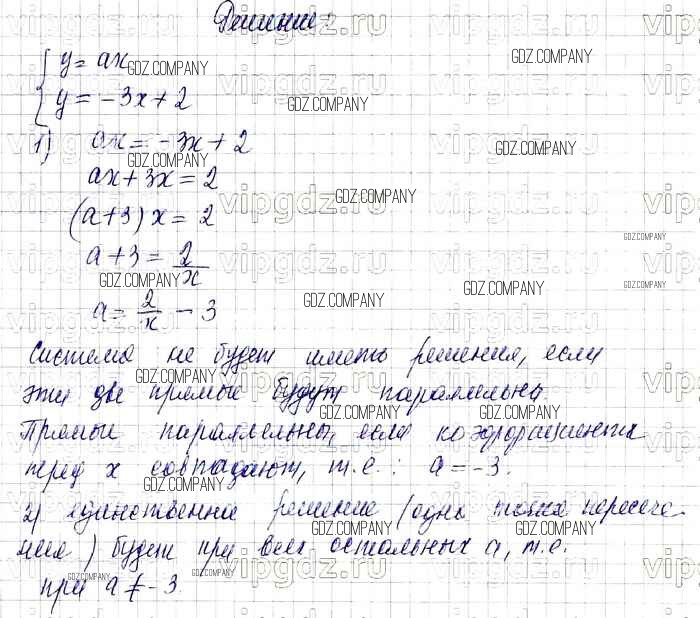 Решение:
y = ax
y = -3x + 2
1) ax = -3x + 2
ax + 3x = 2
(a+3)x = 2
a + 3 = 2/x
a = 2/x - 3
Система не будет иметь решения, если
эти две прямые будут параллельны
Прямые параллельны, если коэффициенты
перед x совпадают, т.е.: a = -3.
2) единственное решение (одна точка пересече-
ния) будет при всех остальных a, т.е.
при a ≠ -3.
GDZ.COMPANY
vipgdz.ru